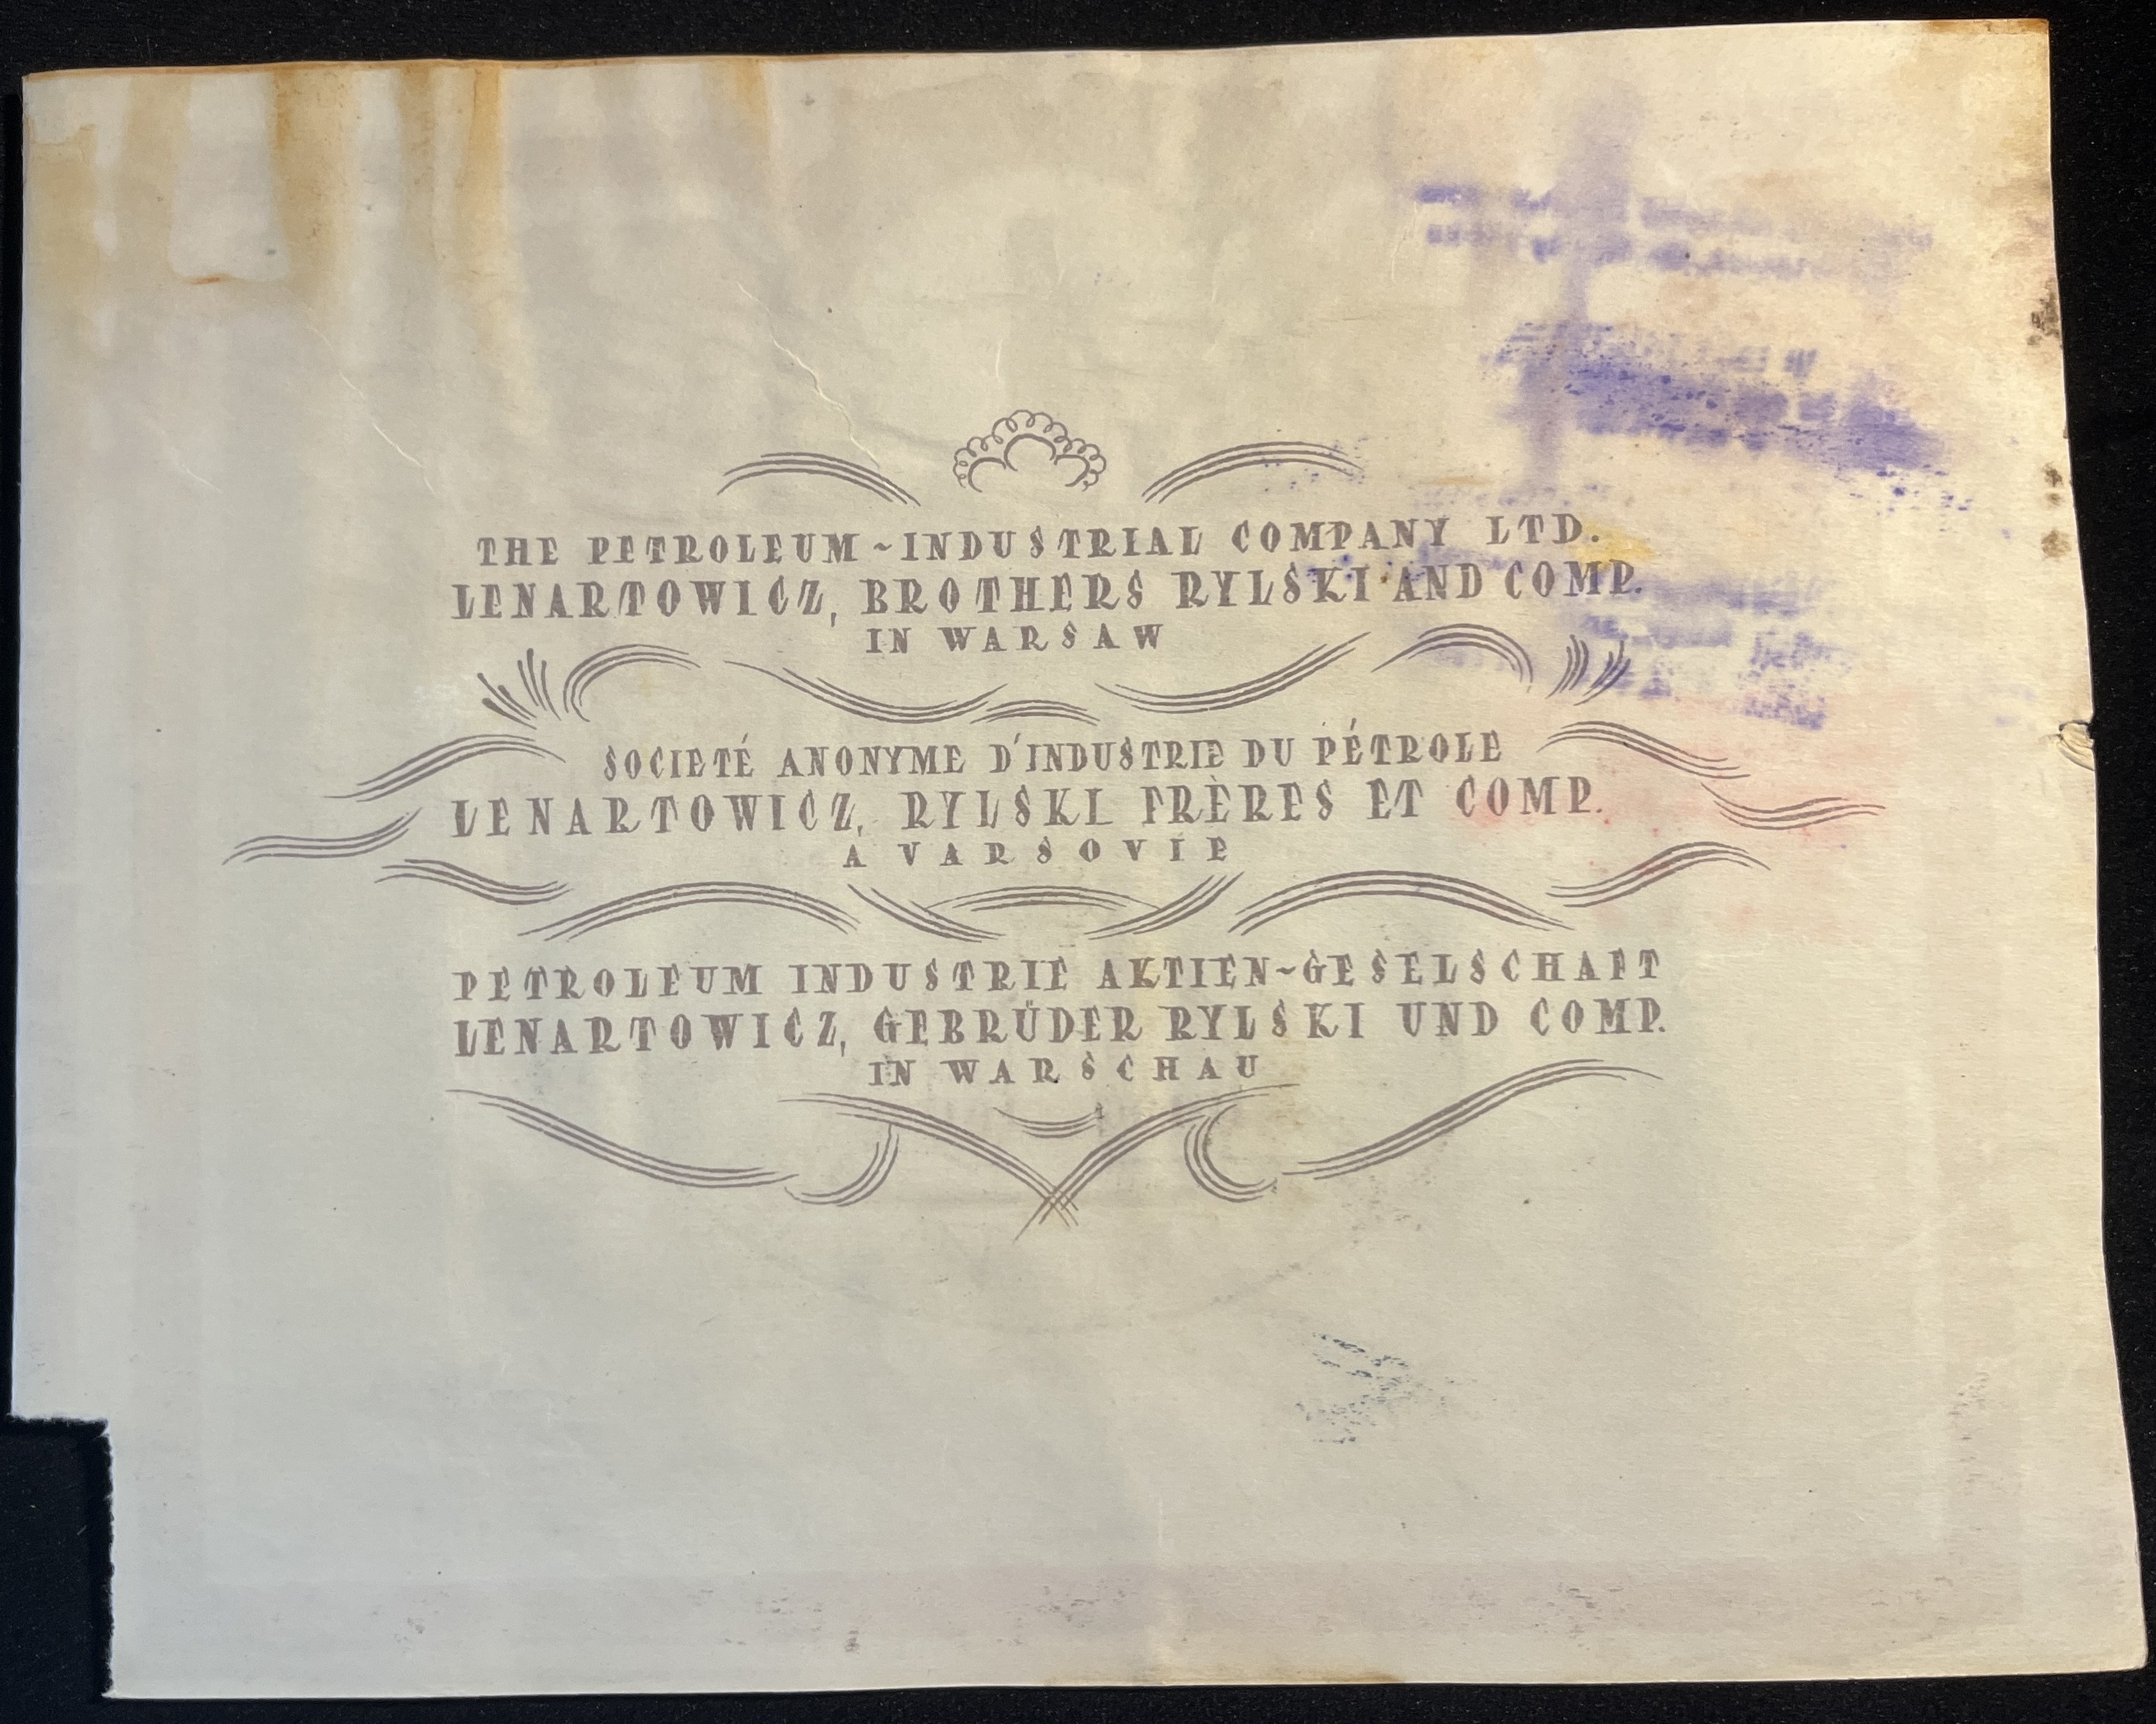 THE PETROLEUM~INDUSTRIAL COMPANY LTD.
LENARTOWICZ, BROTHERS RYLSKI AND COMP.
IN WARSAW
SOCIETÉ ANONYME D'INDUSTRIE DU PÉTROLE
LENARTOWICZ, RYLSKI FRÈRES ET COMP.
A VARSOVIE
PETROLEUM INDUSTRIE AKTIEN~GESELSCHAFT
LENARTOWICZ, GEBRÜDER RYLSKI UND COMP.
IN WARSCHAU